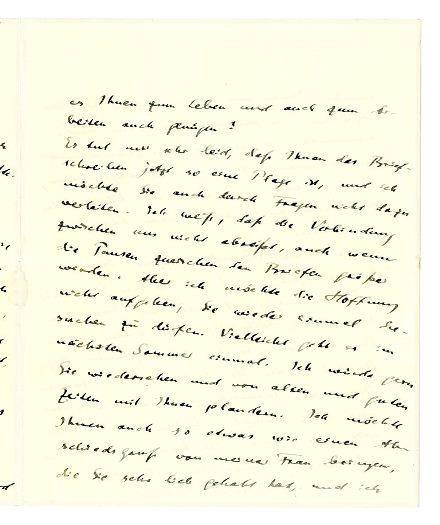 es Ihnen zum Leben und auch zum Ar-
beiten auch genügen?
Es tut mir sehr leid, daß Ihnen das Brief-
schreiben jetzt so eine Plage ist, und ich
möchte Sie auch durch Fragen nicht dazu
verleiten. Ich weiß, daß die Verbindung
zwischen uns nicht abreißt, auch wenn
die Pausen zwischen den Briefen größer
werden. Aber ich möchte die Hoffnung
nicht aufgeben, Sie wieder einmal be-
suchen zu dürfen. Vielleicht geht es im
nächsten Sommer einmal. Ich würde gern
Sie wiedersehen und von alten und guten
Zeiten mit Ihnen plaudern. Ich möchte
Ihnen auch so etwas wie einen Ab-
schiedsgruß von meiner Frau bringen,
die Sie sehr lieb gehabt hat, und ich